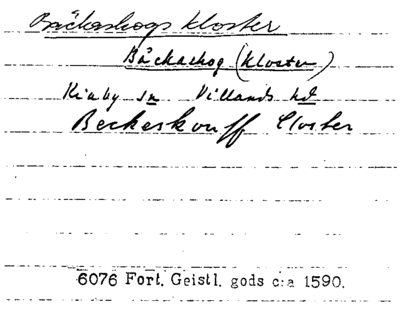 Bäckaskogs kloster
Bäckaskog (kloster)
Kiaby sn Villands hd
Beckeskouff Closter
6076 Fort. Geistl. gods c:a 1590.